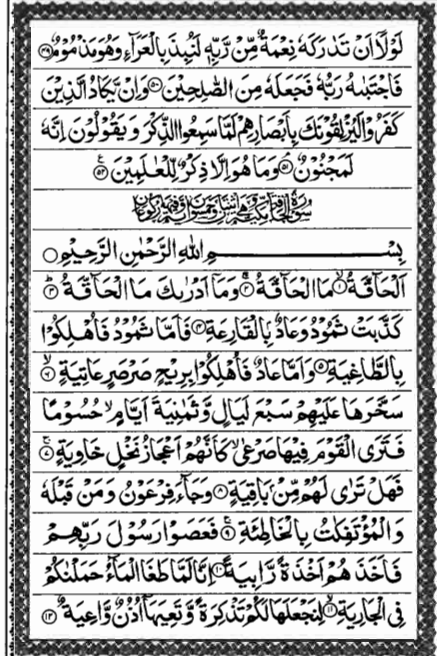 لَوْلَآ اَنْ تَدٰرَكَهٗ نِعْمَةٌ مِّنْ رَّبِّهٖ لَنُبِذَ بِالْعَرَآءِ وَهُوَ مَذْمُوْمٌ ۝۴۹
فَاجْتَبٰىهُ رَبُّهٗ فَجَعَلَهٗ مِنَ الصّٰلِحِيْنَ ۝۵۰ وَاِنْ يَّكَادُ الَّذِيْنَ
كَفَرُوْا لَيُزْلِقُوْنَكَ بِاَبْصَارِهِمْ لَمَّا سَمِعُوا الذِّكْرَ وَيَقُوْلُوْنَ اِنَّهٗ
لَمَجْنُوْنٌ ۝۵۱ وَمَا هُوَ اِلَّا ذِكْرٌ لِّلْعٰلَمِيْنَ ۝۵۲
بِسْمِ اللّٰهِ الرَّحْمٰنِ الرَّحِيْمِ ۝
اَلْحَآقَّةُ ۝۱ مَا الْحَآقَّةُ ۝۲ وَمَآ اَدْرٰىكَ مَا الْحَآقَّةُ ۝۳
كَذَّبَتْ ثَمُوْدُ وَعَادٌۢ بِالْقَارِعَةِ ۝۴ فَاَمَّا ثَمُوْدُ فَاُهْلِكُوْا
بِالطَّاغِيَةِ ۝۵ وَاَمَّا عَادٌ فَاُهْلِكُوْا بِرِيْحٍ صَرْصَرٍ عَاتِيَةٍ ۝۶
سَخَّرَهَا عَلَيْهِمْ سَبْعَ لَيَالٍ وَّثَمٰنِيَةَ اَيَّامٍ حُسُوْمًا
فَتَرَى الْقَوْمَ فِيْهَا صَرْعٰى كَاَنَّهُمْ اَعْجَازُ نَخْلٍ خَاوِيَةٍ ۝۷
فَهَلْ تَرٰى لَهُمْ مِّنْۢ بَاقِيَةٍ ۝۸ وَجَآءَ فِرْعَوْنُ وَمَنْ قَبْلَهٗ
وَالْمُؤْتَفِكٰتُ بِالْخَاطِئَةِ ۝۹ فَعَصَوْا رَسُوْلَ رَبِّهِمْ
فَاَخَذَهُمْ اَخْذَةً رَّابِيَةً ۝۱۰ اِنَّا لَمَّا طَغَا الْمَآءُ حَمَلْنٰكُمْ
فِى الْجَارِيَةِ ۝۱۱ لِنَجْعَلَهَا لَكُمْ تَذْكِرَةً وَّتَعِيَهَآ اُذُنٌ وَّاعِيَةٌ ۝۱۲